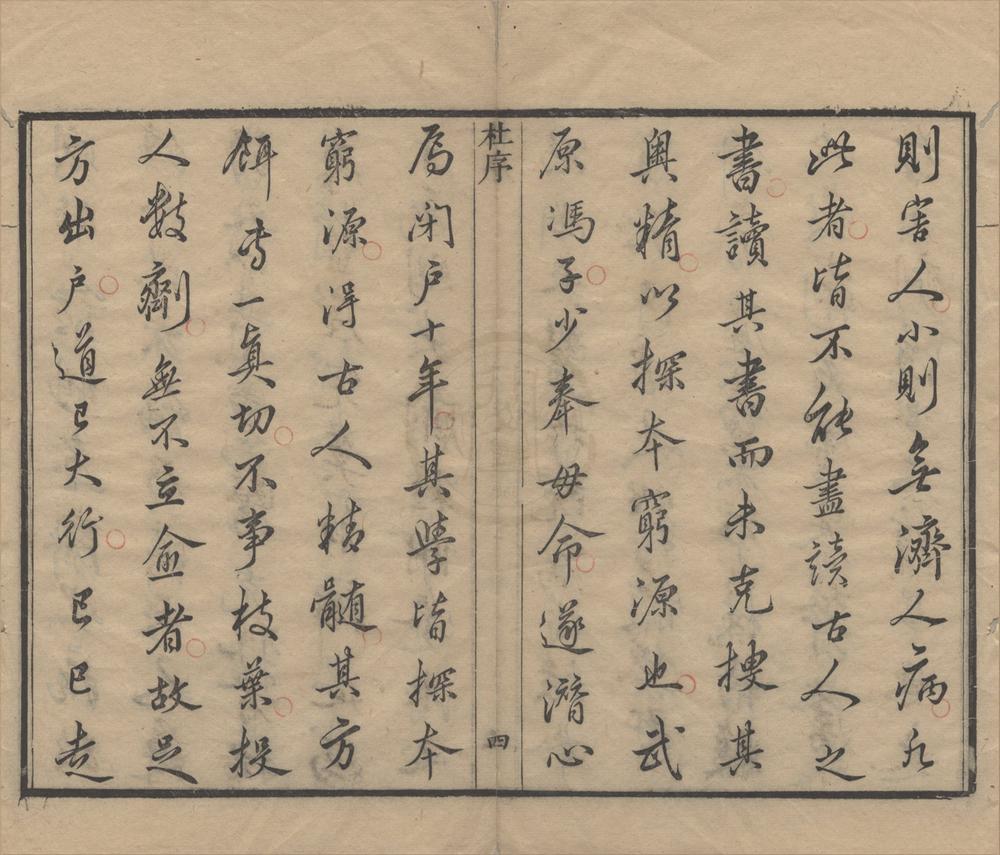 則害人小則無濟人病凡
此者皆不能盡讀古人之
書讀其書而未克搜其
奧精以探本窮源也武
原馮子少奉母命遂潛心
杜序
四
焉閉戶十年其學皆探本
窮源得古人精髓其方
餌專一真切不事枝葉投
人數劑無不立愈者故足
方出戶道已大行己巳走